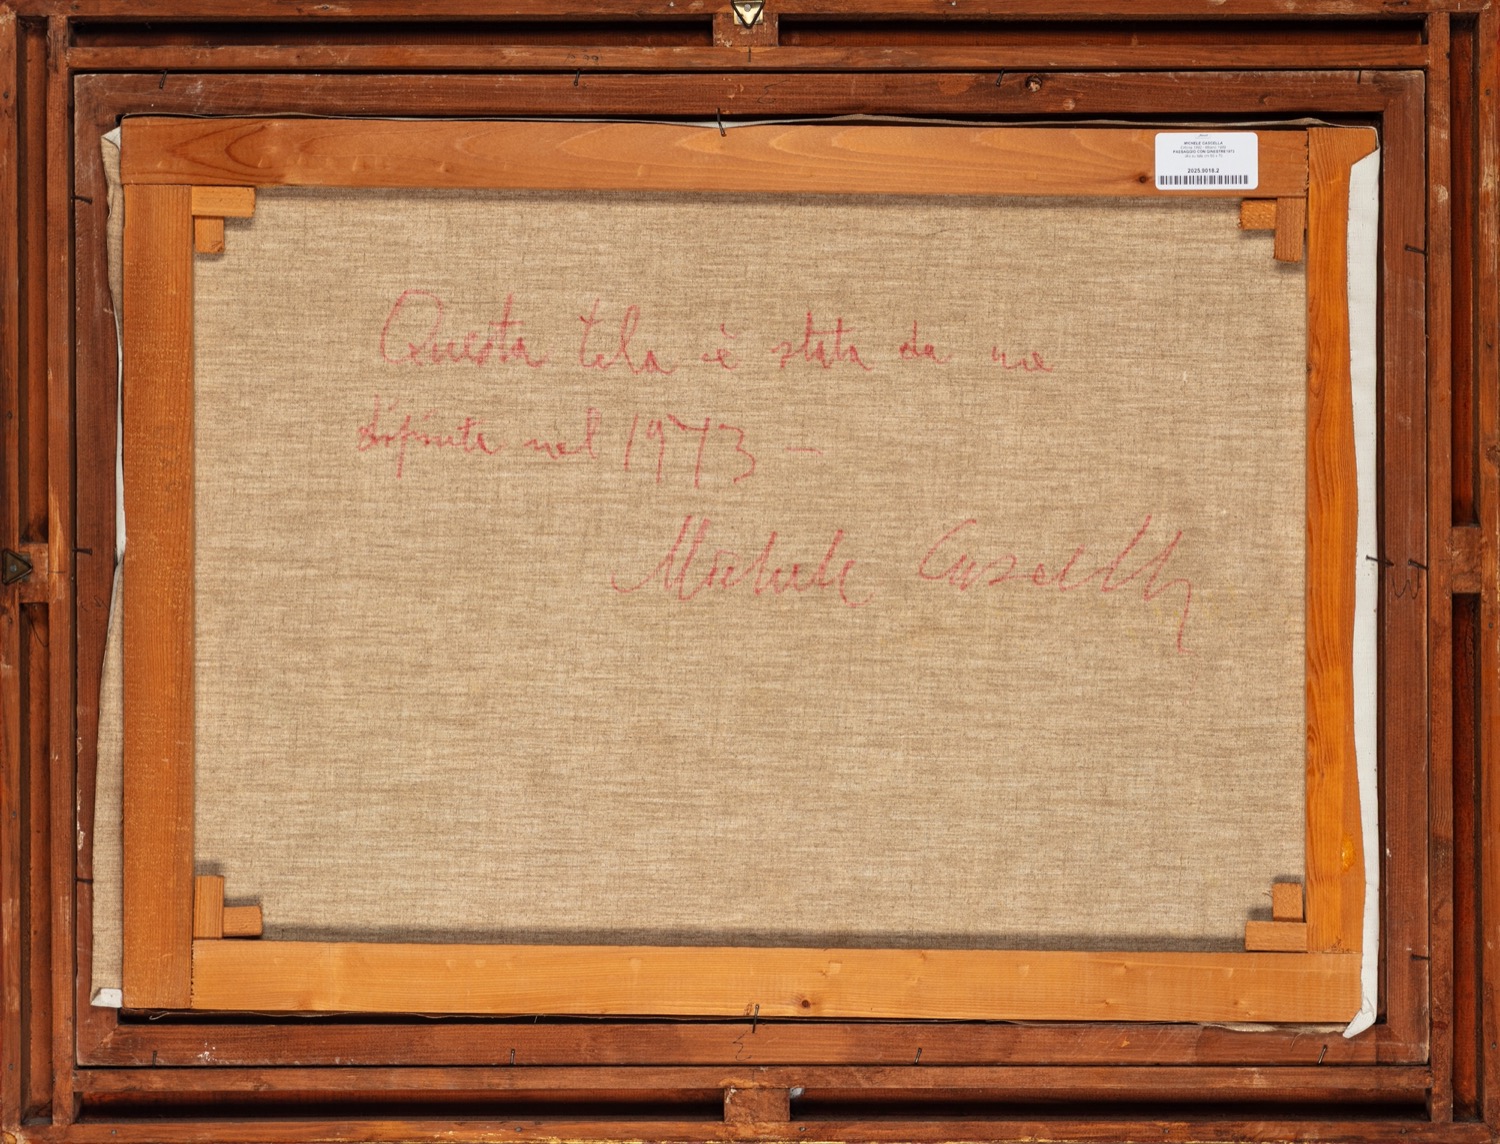 Questa tela è stata da me
dipinta nel 1973 —
Michele Cascella
MICHELE CASCELLA
PAESAGGIO CON GINESTRE 1973
2025.0018.2